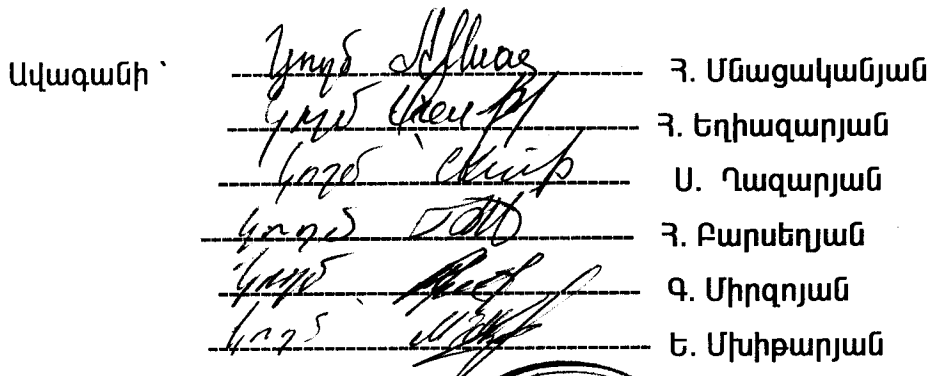 Կողմ Հ. Մնացականյան
Ավագանի ՝
Կողմ Հ. Եղիազարյան
Կողմ Ս. Ղազարյան
Կողմ Հ. Բարսեղյան
Կողմ Գ. Միրզոյան
Կողմ Ե. Մխիթարյան